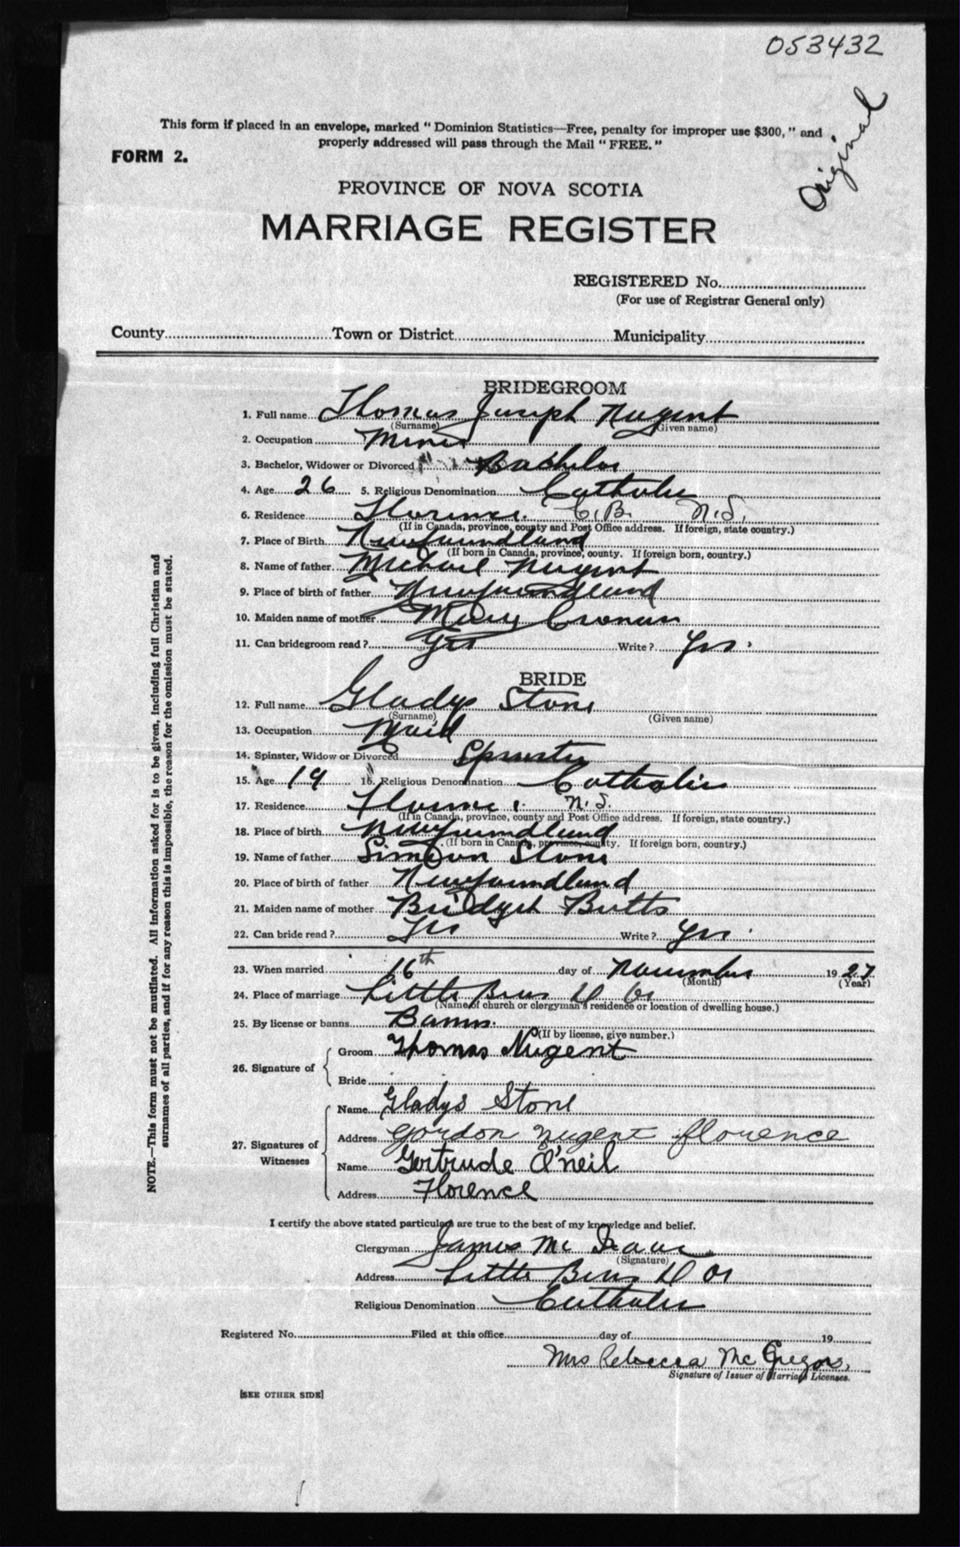 053432
Original
This form if placed in an envelope, marked " Dominion Statistics—Free, penalty for improper use $300, " and
properly addressed will pass through the Mail " FREE. "
FORM 2.
PROVINCE OF NOVA SCOTIA
MARRIAGE REGISTER
REGISTERED No.
(For use of Registrar General only)
County Town or District Municipality
BRIDEGROOM
1. Full name Thomas Joseph Nugent
(Surname) (Given name)
2. Occupation Miner
3. Bachelor, Widower or Divorced Bachelor
4. Age 26 5. Religious Denomination Catholic
6. Residence Florence. C.B. N.S.
(If in Canada, province, county and Post Office address. If foreign, state country.)
7. Place of Birth Newfoundland
(If born in Canada, province, county. If foreign born, country.)
8. Name of father Michael Nugent
9. Place of birth of father Newfoundland
10. Maiden name of mother Mary Cronan
11. Can bridegroom read ? Yes Write ? Yes.
BRIDE
12. Full name Gladys Stone
(Surname) (Given name)
13. Occupation Maid
14. Spinster, Widow or Divorced Spinster
15. Age 19 16. Religious Denomination Catholic
17. Residence Florence. N.S.
(If in Canada, province, county and Post Office address. If foreign, state country.)
18. Place of birth Newfoundland
(If born in Canada, province, county. If foreign born, country.)
19. Name of father Simeon Stone
20. Place of birth of father Newfoundland
21. Maiden name of mother Bridget Butts
22. Can bride read ? Yes Write ? Yes.
23. When married 16th day of November 1927
(Month) (Year)
24. Place of marriage Little Bras D Or
(Name of church or clergyman's residence or location of dwelling house.)
25. By license or banns Banns.
(If by license, give number.)
26. Signature of
Groom Thomas Nugent
Bride
27. Signatures of Witnesses
Name Gladys Stone
Address Gordon Nugent florence
Name Gertrude O'neil
Address Florence
I certify the above stated particulars are true to the best of my knowledge and belief.
Clergyman James Mc Isaac
(Signature)
Address Little Bras D Or
Religious Denomination Catholic
Registered No. Filed at this office day of 19
Mrs Rebecca McGregor.
Signature of Issuer of Marriage Licenses.
[SEE OTHER SIDE]
NOTE.—This form must not be mutilated. All information asked for is to be given, including full Christian and
surnames of all parties, and if for any reason this is impossible, the reason for the omission must be stated.